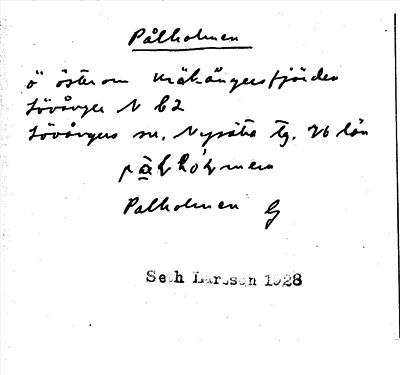 Pålholmen
ö öster om Kråkångersfjärden
Lövånger N b2
Lövångers sn. Nysätra tg. Vb län
Palholmen G
Seth Larsson 1928